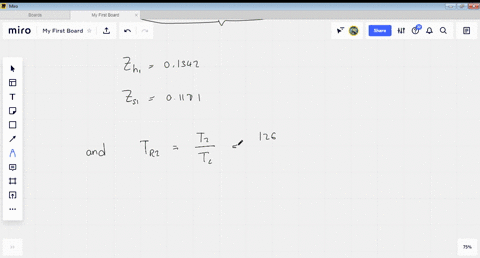 Miro
Boards
My First Board
miro
My First Board
Share
Z h₁ = 0.1342
Z s₁ = 0.1171
and T R2 = T₂ / T c = 126
75%